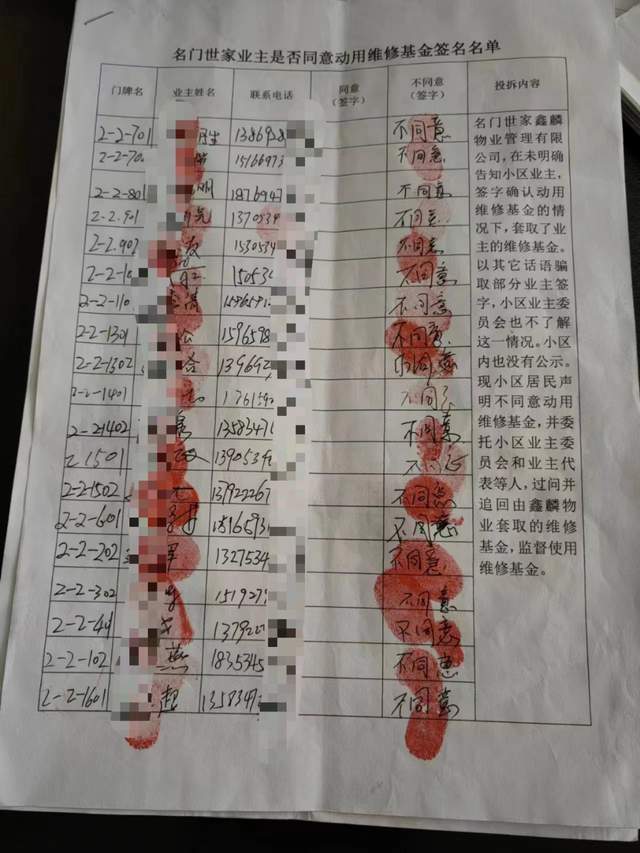 名门世家业主是否同意动用维修基金签名名单
门牌名 业主姓名 联系电话 同意（签字） 不同意（签字） 投拆内容
2-2-701 1386928 不同意
2-2-70 15166973 不同意
2-2-801 明 1876947 不同意
2-2-901 1370534 不同意
2-2-902 1530534 不同意
2-2-10 150534 不同意
2-2-110 不同意
2-2-1301 1596598 不同意
2-2-1302 139692 不同意
2-2-1401 176154 不同
2-2-1402 1358347 不同意
2-1501 1390534
2-2-1502 137922267 不同意
2-2-601 18165931 不同意
2-2-202 军 1327534 不同意
2-2-302 151927 不同意
2-2-44 137922 不同意
2-2-102 燕 1835345 不同意
2-2-1601 超 1358347 不同意
名门世家鑫麟
物业管理有限
公司，在未明确
告知小区业主，
签字确认动用
维修基金的情
况下，套取了业
主的维修基金。
以其它话语骗
取部分业主签
字，小区业主委
员会也不了解
这一情况。小区
内也没有公示。
现小区居民声
明不同意动用
维修基金，并委
托小区业主委
员会和业主代
表等人，过问并
追回由鑫麟物
业套取的维修
基金，监督使用
维修基金。